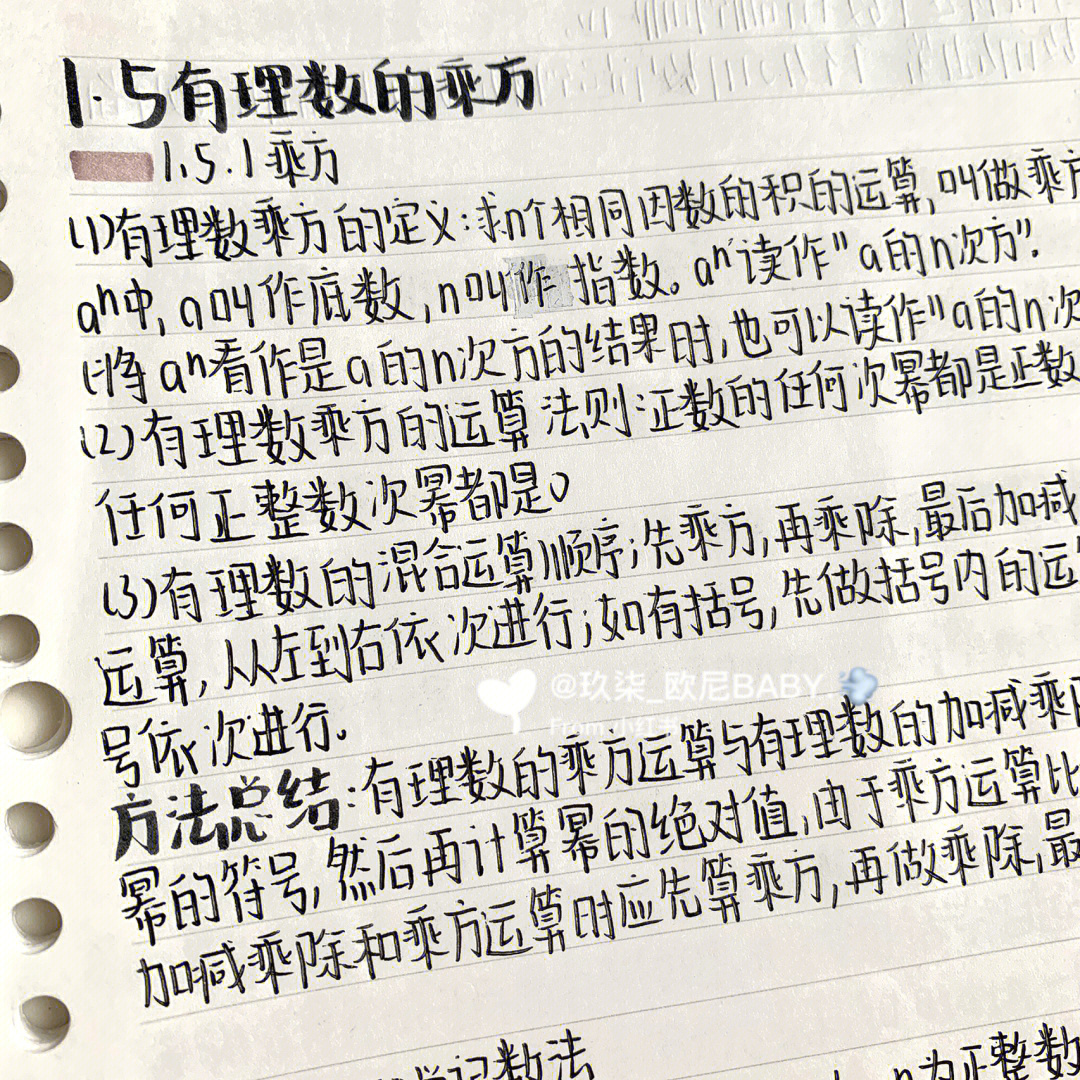 1.5有理数的乘方
1.5.1乘方
(1)有理数乘方的定义:求n个相同因数的积的运算,叫做乘方
aⁿ中,a叫作底数,n叫作指数。aⁿ读作"a的n次方".
(将aⁿ看作是a的n次方的结果时,也可以读作"a的n次
(2)有理数乘方的运算法则:正数的任何次幂都是正数
任何正整数次幂都是0
(3)有理数的混合运算顺序;先乘方,再乘除,最后加减
运算,从左到右依次进行;如有括号,先做括号内的运
号依次进行.
方法总结:有理数的乘方运算与有理数的加减乘
幂的符号,然后再计算幂的绝对值,由于乘方运算比
加减乘除和乘方运算时应先算乘方,再做乘除,最
@玖柒_欧尼BABY
From 小红书
记数法
n为正整数